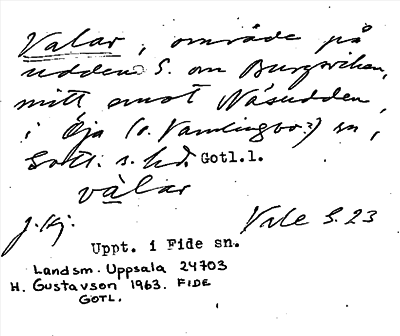 Valar, område på
udden S. om Burgsviken,
mitt emot Näsudden,
i Öja (o. Vamlingbo?) sn,
Gotl. s. hd. Gotl.l.
vàlar
J. Kj. Vale S. 23
Uppt. i Fide sn.
Landsm. Uppsala 24703
H. Gustavson 1963. FIDE
GOTL.